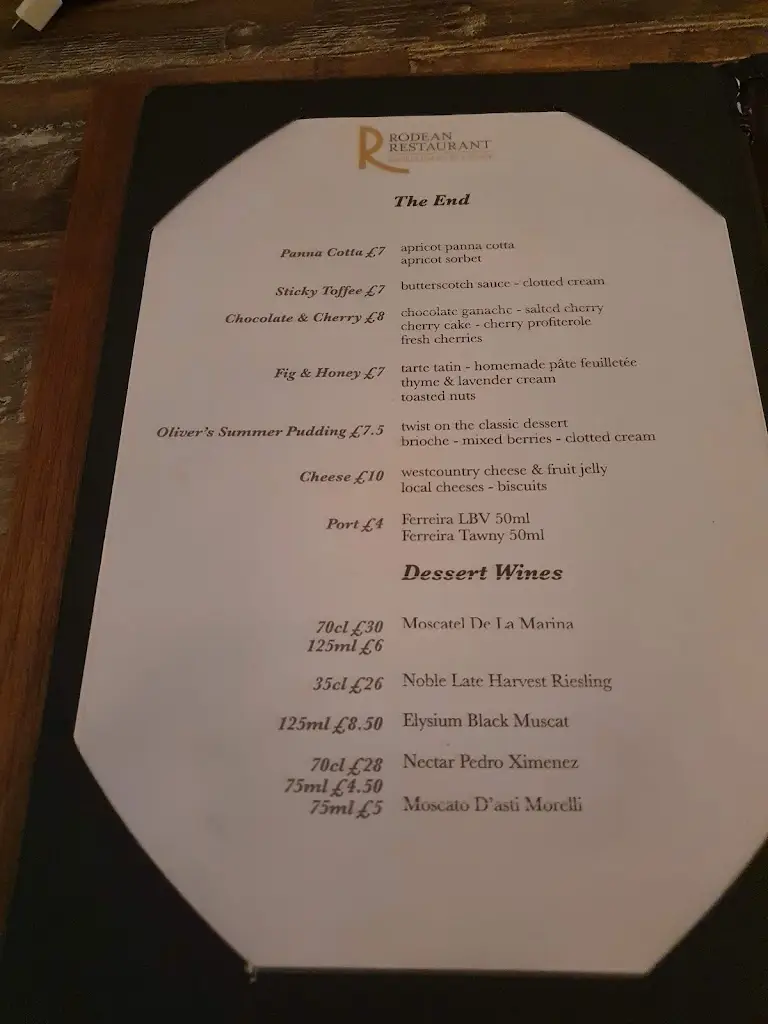 R RODEAN
RESTAURANT
The End
Panna Cotta £7 apricot panna cotta
apricot sorbet
Sticky Toffee £7 butterscotch sauce - clotted cream
Chocolate & Cherry £8 chocolate ganache - salted cherry
cherry cake - cherry profiterole
fresh cherries
Fig & Honey £7 tarte tatin - homemade pâte feuilletée
thyme & lavender cream
toasted nuts
Oliver's Summer Pudding £7.5 twist on the classic dessert
brioche - mixed berries - clotted cream
Cheese £10 westcountry cheese & fruit jelly
local cheeses - biscuits
Port £4 Ferreira LBV 50ml
Ferreira Tawny 50ml
Dessert Wines
70cl £30 Moscatel De La Marina
125ml £6
35cl £26 Noble Late Harvest Riesling
125ml £8.50 Elysium Black Muscat
70cl £28 Nectar Pedro Ximenez
75ml £4.50
75ml £5 Moscato D'asti Morelli